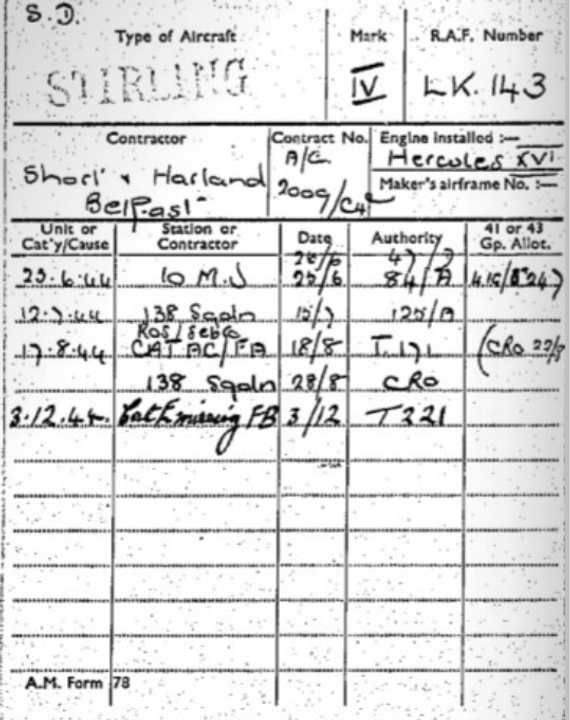 S.D.
Type of Aircraft Mark R.A.F. Number
STIRLING IV LK.143
Contractor Contract No. Engine installed :—
A/C Hercules XVI
Short & Harland Maker's airframe No. :—
Belfast 2009/C4c
Unit or Station or Date Authority 41 or 43
Cat'y/Cause Contractor Gp. Allot.
26/6 47/
23.6.44 10 M.U 25/6 84/A
12.7.44 138 Sqdn 15/7 125/A
Ros/Sebro
17.8.44 CAT AC/FA 18/8 T.171 (CRO 22/8
138 Sqdn 28/8 CRO
3.12.44. Cat E missing FB 3/12 T221
A.M. Form 78